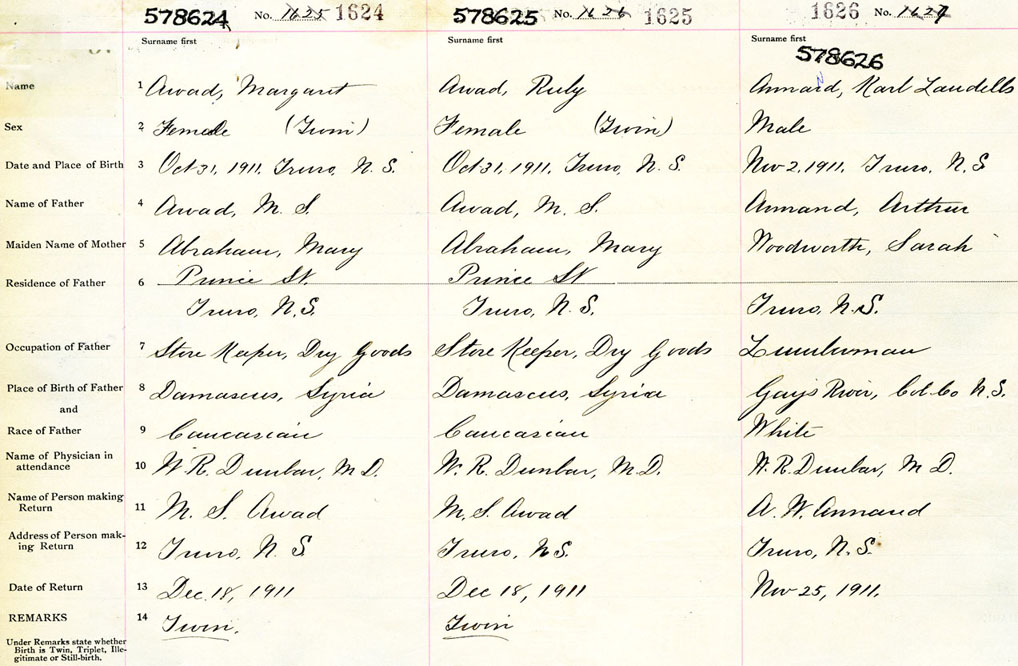 578624 No. 1625 1624 578625 No. 1626 1625 1626 No. 1627
Surname first Surname first Surname first
578626
Name 1 Awad, Margaret Awad, Ruby Annard, Karl Laudells
N
Sex 2 Female (Twin) Female (Twin) Male
Date and Place of Birth 3 Oct 31, 1911, Truro, N. S. Oct 31, 1911, Truro, N. S. Nov 2, 1911, Truro, N. S
Name of Father 4 Awad, M. S. Awad, M. S. Annand, Arthur
Maiden Name of Mother 5 Abraham, Mary Abraham, Mary Woodworth, Sarah
Residence of Father 6 Prince St. Prince St
Truro, N. S. Truro, N. S. Truro, N. S.
Occupation of Father 7 Store Keeper, Dry Goods Store Keeper, Dry Goods Lumberman
Place of Birth of Father 8 Damascus, Syria Damascus, Syria Gays River, Col. Co N. S.
and
Race of Father 9 Caucasian Caucasian White
Name of Physician in
attendance 10 W. R. Dunbar, M. D. W. R. Dunbar, M. D. W. R. Dunbar, M. D.
Name of Person making
Return 11 M. S. Awad M. S. Awad A. W. Annand
Address of Person mak-
ing Return 12 Truro, N. S Truro, N. S. Truro, N. S.
Date of Return 13 Dec. 18, 1911 Dec 18, 1911 Nov 25, 1911.
REMARKS 14 Twin. Twin
Under Remarks state whether
Birth is Twin, Triplet, Ille-
gitimate or Still-birth.